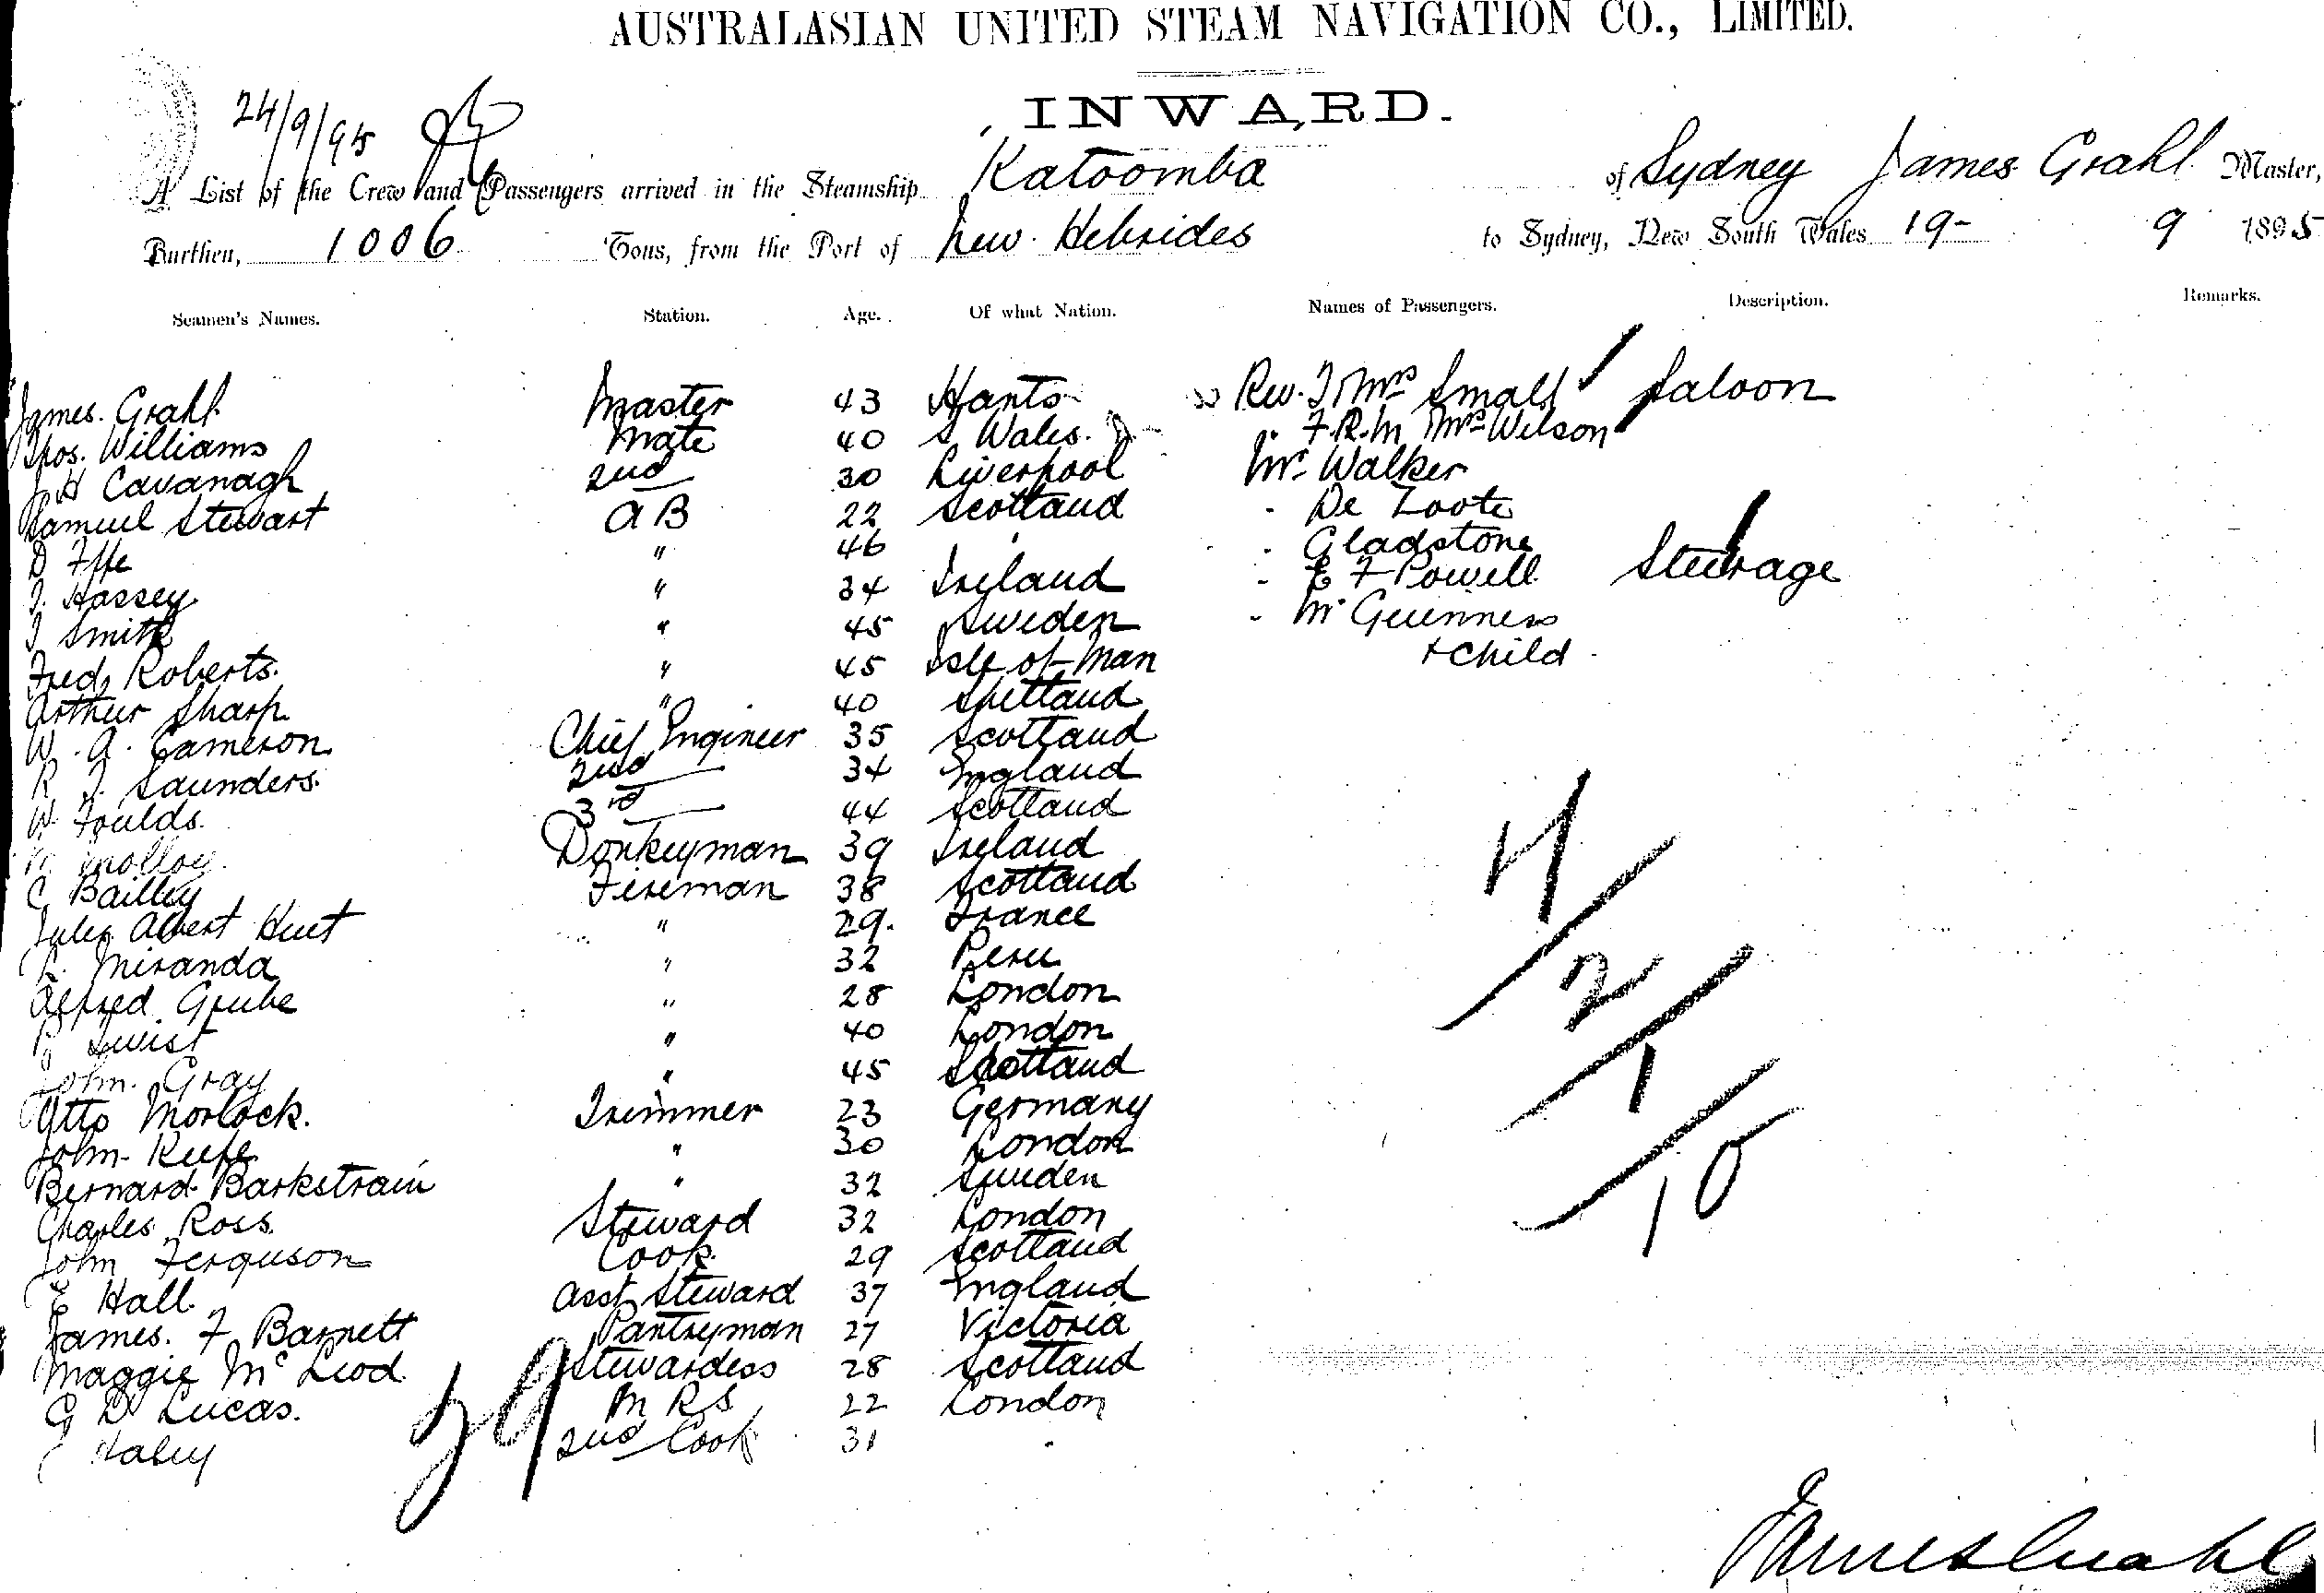 AUSTRALASIAN UNITED STEAM NAVIGATION CO., LIMITED.
INWARD.
24/9/95
A List of the Crew and Passengers arrived in the Steamship Katoomba of Sydney James Grahl Master,
Burthen, 1006 Tons, from the Port of New Hebrides to Sydney, New South Wales 19- 9 1895
Seamen's Names. Station. Age. Of what Nation. Names of Passengers. Description. Remarks.
James. Grahl Master 43 Hants Rev. & Mrs Small Saloon
Thos. Williams Mate 40 S Wales. " F.R.M Mrs Wilson
J H Cavanagh 2nd 30 Liverpool Mr Walker
Samuel Stewart AB 22 Scotland - De Loote
D Iffe " 46 - Gladstone
J. Hassey " 34 Ireland - E F Powell Steerage
J Smith " 45 Sweden - McGuenness
Fred Roberts. " 45 Isle of Man + Child
Arthur Sharp " 40 Shetland
W. A. Cameron Chief Engineer 35 Scotland
R J. Saunders. 2nd 34 England
W Foulds. 3rd 44 Scotland
Molloy. Donkeyman 39 Ireland
C Bailley Fireman 38 Scotland
Jules Albert Huet " 29. France
L. Miranda " 32 Peru
Alfred Grube " 28 London
Twist " 40 London
John. Gray " 45 Scotland
Otto Morlock. Trimmer 23 Germany
John Keefe " 30 London
Bernard Barkstrain " 32 Sweden
Charles Ross. Steward 32 London
John Ferguson Cook. 29 Scotland
E Hall. Asst Steward 37 England
James. F Barnett Pantryman 27 Victoria
Maggie McLeod. Stewardess 28 Scotland
G D Lucas. M R S 22 London
Haley 2nd Cook 31 "
29
4/2/1/10
James Grahl